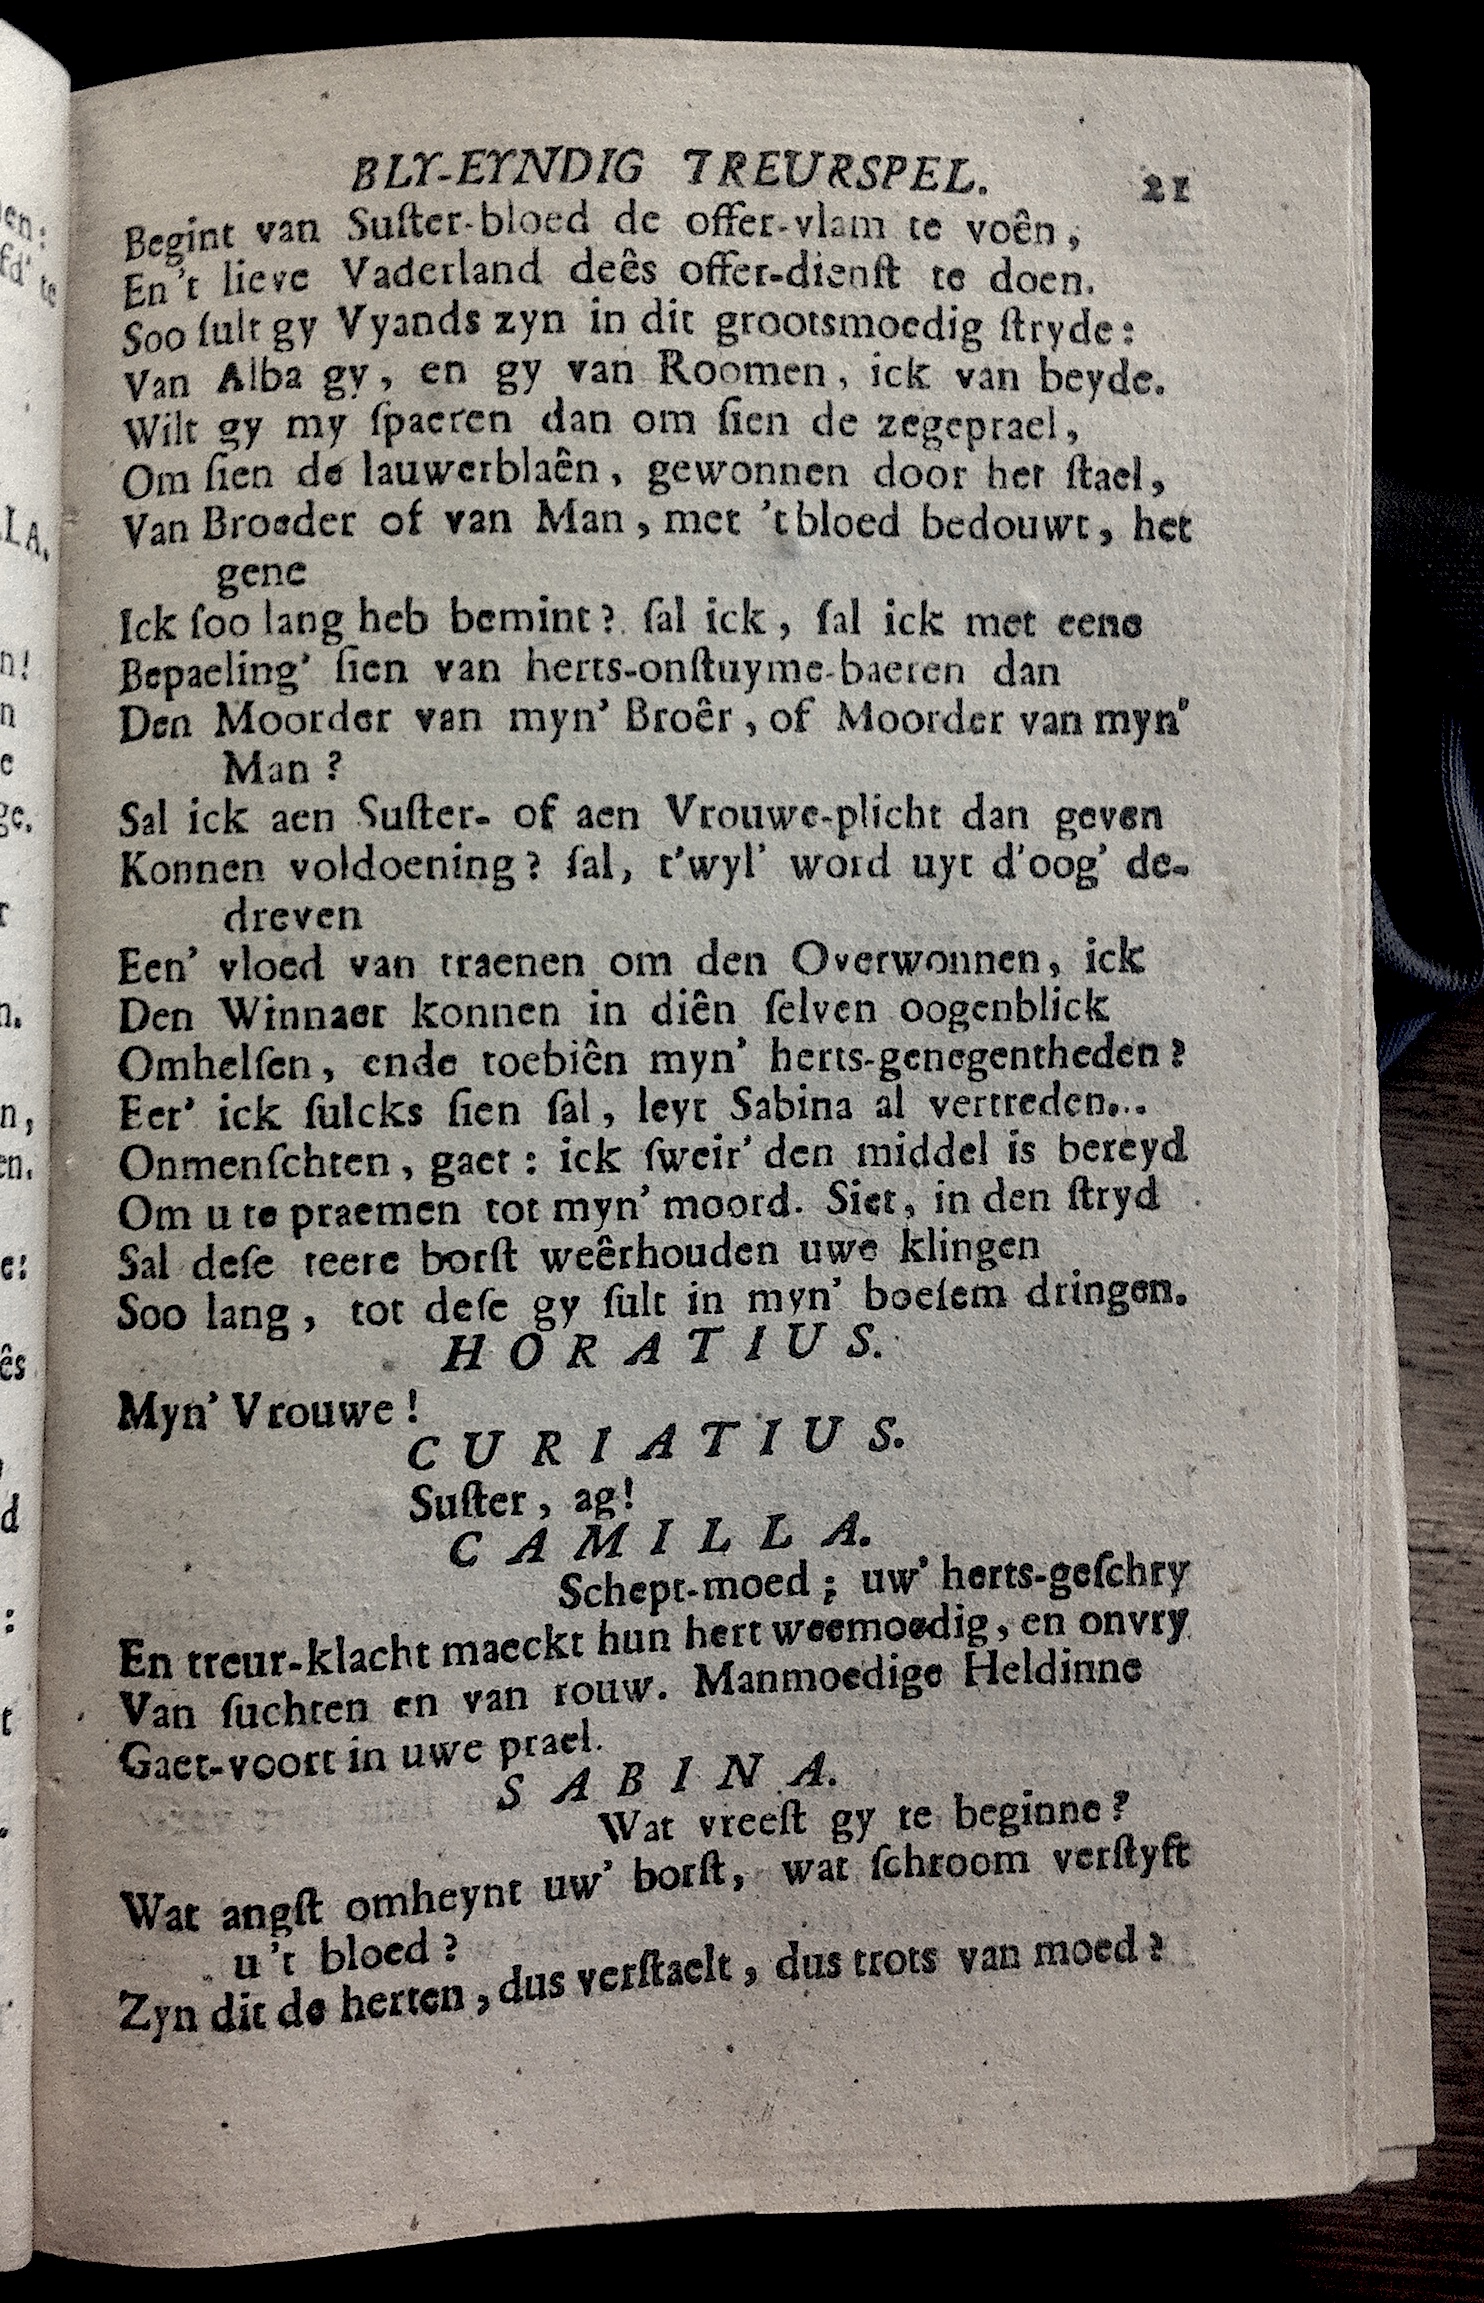 BLY-EYNDIG TREURSPEL. 21
Begint van Suſter-bloed de offer-vlam te voên,
En 't lieve Vaderland deês offer-dienſt te doen.
Soo ſult gy Vyands zyn in dit grootsmoedig ſtryde:
Van Alba gy, en gy van Roomen, ick van beyde.
Wilt gy my ſpaeren dan om ſien de zegeprael,
Om ſien de lauwerblaên, gewonnen door het ſtael,
Van Broeder of van Man, met 't bloed bedouwt, het
gene
Ick ſoo lang heb bemint? ſal ick, ſal ick met eene
Bepaeling' ſien van herts-onſtuyme-baeren dan
Den Moorder van myn' Broêr, of Moorder van myn'
Man?
Sal ick aen Suſter- of aen Vrouwe-plicht dan geven
Konnen voldoening? ſal, t'wyl' word uyt d'oog' de-
dreven
Een' vloed van traenen om den Overwonnen, ick
Den Winnaer konnen in diên ſelven oogenblick
Omhelſen, ende toebiên myn' herts-genegentheden?
Eer' ick ſulcks ſien ſal, leyt Sabina al vertreden...
Onmenſchten, gaet: ick ſweir' den middel is bereyd
Om u te praemen tot myn' moord. Siet, in den ſtryd
Sal deſe teere borſt weêrhouden uwe klingen
Soo lang, tot deſe gy ſult in myn' boeſem dringen.
HORATIUS.
Myn' Vrouwe!
CURIATIUS.
Suſter, ag!
CAMILLA.
Schept-moed; uw' herts-geſchry
En treur-klacht maeckt hun hert weemoedig, en onvry
Van ſuchten en van rouw. Manmoedige Heldinne
Gaet-voort in uwe prael.
SABINA.
Wat vreeſt gy te beginne?
Wat angſt omheynt uw' borſt, wat ſchroom verſtyft
u 't bloed?
Zyn dit de herten, dus verſtaelt, dus trots van moed?